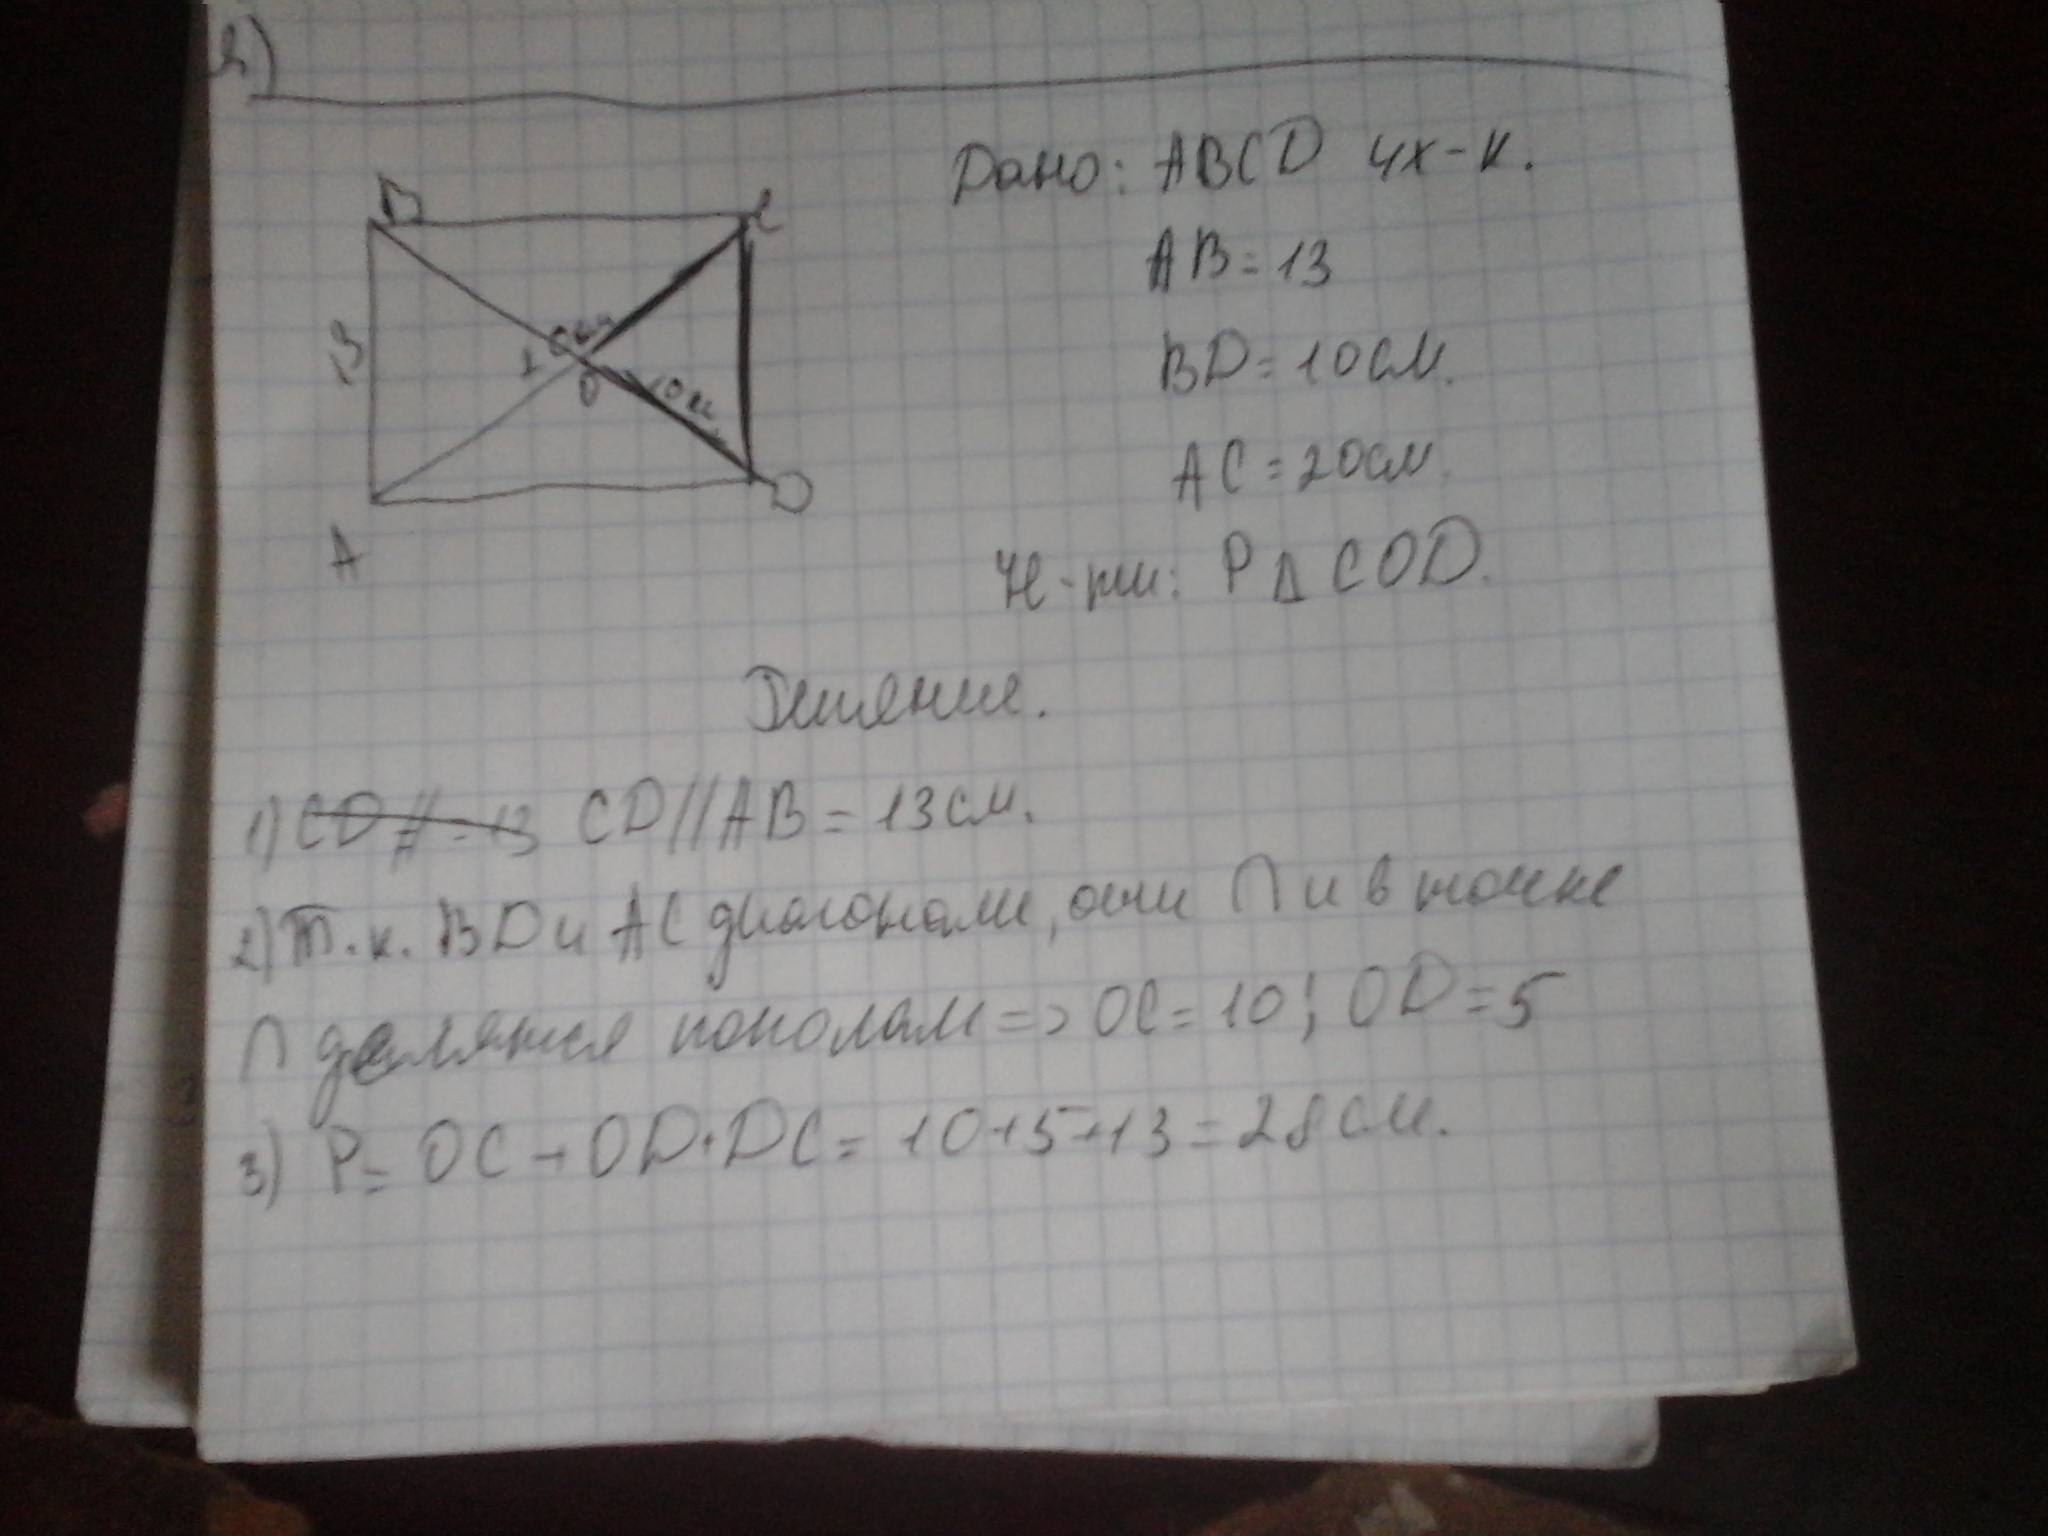 2)
Дано: ABCD 4х-к.
AB=13
BD=10см.
AC=20см.
Н-ти: P∆COD.
B
C
13
O
10см
A
D
Решение.
1) CD//=13 CD//AB=13см.
2) Т.к. BD и AC диагонали, они ∩ и в точке
∩ делятся пополам=> OC=10; OD=5
3) P= OC+OD+DC= 10+5+13=28см.